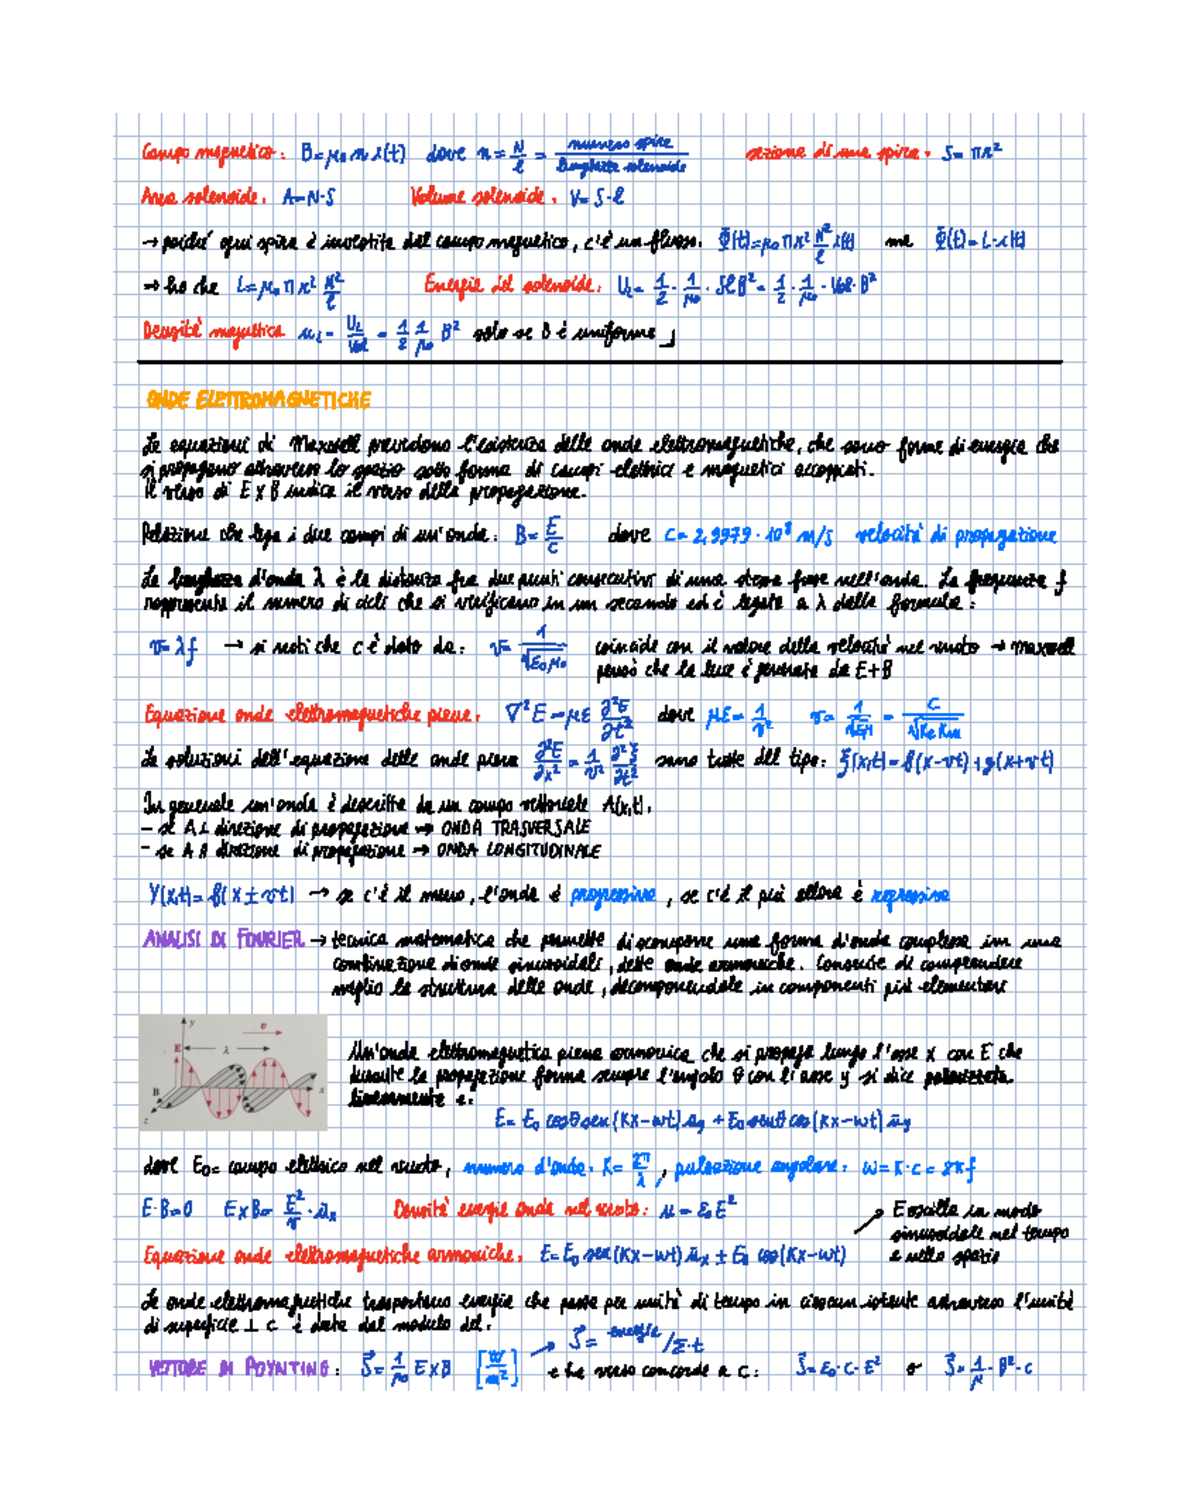 Campo magnetico: B=μ₀ n i(t) dove n = N/l = numero spire / lunghezza solenoide sezione di una spira: S= πr²
Area solenoide: A=N·S Volume solenoide: V= S·l
→ poiché ogni spira è investita dal campo magnetico, c'è un flusso: Φ(t)=μ₀ πr² N²/l i(t) ma Φ(t)= L·i(t)
→ ho che L=μ₀ π r² N²/l Energia del solenoide: U_L = 1/2 · 1/μ₀ · SlB² = 1/2 · 1/μ₀ · Vol· B²
Densità magnetica u_L = U_L/Vol = 1/2 1/μ₀ B² solo se B è uniforme
ONDE ELETTROMAGNETICHE
Le equazioni di Maxwell prevedono l'esistenza delle onde elettromagnetiche, che sono forme di energia che
si propagano attraverso lo spazio sotto forma di campi elettrici e magnetici accoppiati.
Il verso di E x B indica il verso della propagazione.
Relazione che lega i due campi di un'onda: B= E/c dove c= 2,9979 · 10⁸ m/s velocità di propagazione
La lunghezza d'onda λ è la distanza fra due punti consecutivi di una stessa fase nell'onda. La frequenza f
rappresenta il numero di cicli che si verificano in un secondo ed è legata a λ dalla formula:
v= λf → si noti che c è dato da: v= 1/√ε₀μ₀ coincide con il valore della velocità nel vuoto → Maxwell
pensò che la luce è generata da E+B
Equazione onde elettromagnetiche piane: ∇²E = με ∂²E/∂t² dove με = 1/v² v= 1/√εμ = c/√Ke Km
Le soluzioni dell'equazione delle onde piane ∂²ξ/∂x² = 1/v² ∂²ξ/∂t² sono tutte del tipo: ξ(x,t)= f(x-vt)+g(x+vt)
In generale un'onda è descritta da un campo vettoriale A(x,t).
– se A⊥ direzione di propagazione → ONDA TRASVERSALE
– se A ∥ direzione di propagazione → ONDA LONGITUDINALE
Y(x,t)= f(x±vt) → se c'è il meno, l'onda è progressiva, se c'è il più allora è regressiva
ANALISI DI FOURIER → tecnica matematica che permette di scomporre una forma d'onda complessa in una
combinazione di onde sinusoidali, dette onde armoniche. Consente di comprendere
meglio la struttura delle onde, decomponendole in componenti più elementari
y v
E λ
B x
z
Un'onda elettromagnetica piana armonica che si propaga lungo l'asse x con E che
durante la propagazione forma sempre l'angolo θ con l'asse y si dice polarizzata
linearmente e:
E= E₀ cosθ sen(Kx-wt) ūy + E₀ senθ cos(Kx-wt) ūy
dove E₀= campo elettrico nel vuoto, numero d'onda: K= 2π/λ, pulsazione angolare: ω= K·c = 2πf
E·B=0 ExB= E²/v · ūx Densità energia onda nel vuoto: u = ε₀E² E oscilla in modo
sinusoidale nel tempo
e nello spazio
Equazione onde elettromagnetiche armoniche: E=E₀ sen(Kx-wt) ūx ± E₀ cos(Kx-wt)
Le onde elettromagnetiche trasportano energia che passa per unità di tempo in ciascun istante attraverso l'unità
di superficie ⊥ c è data dal modulo del:
S= energia/Σ·t
VETTORE DI POYNTING: S⃗= 1/μ₀ ExB [W/m²] e ha verso concorde a c: S⃗= ε₀·c·E² o S⃗= 1/μ · B²·c